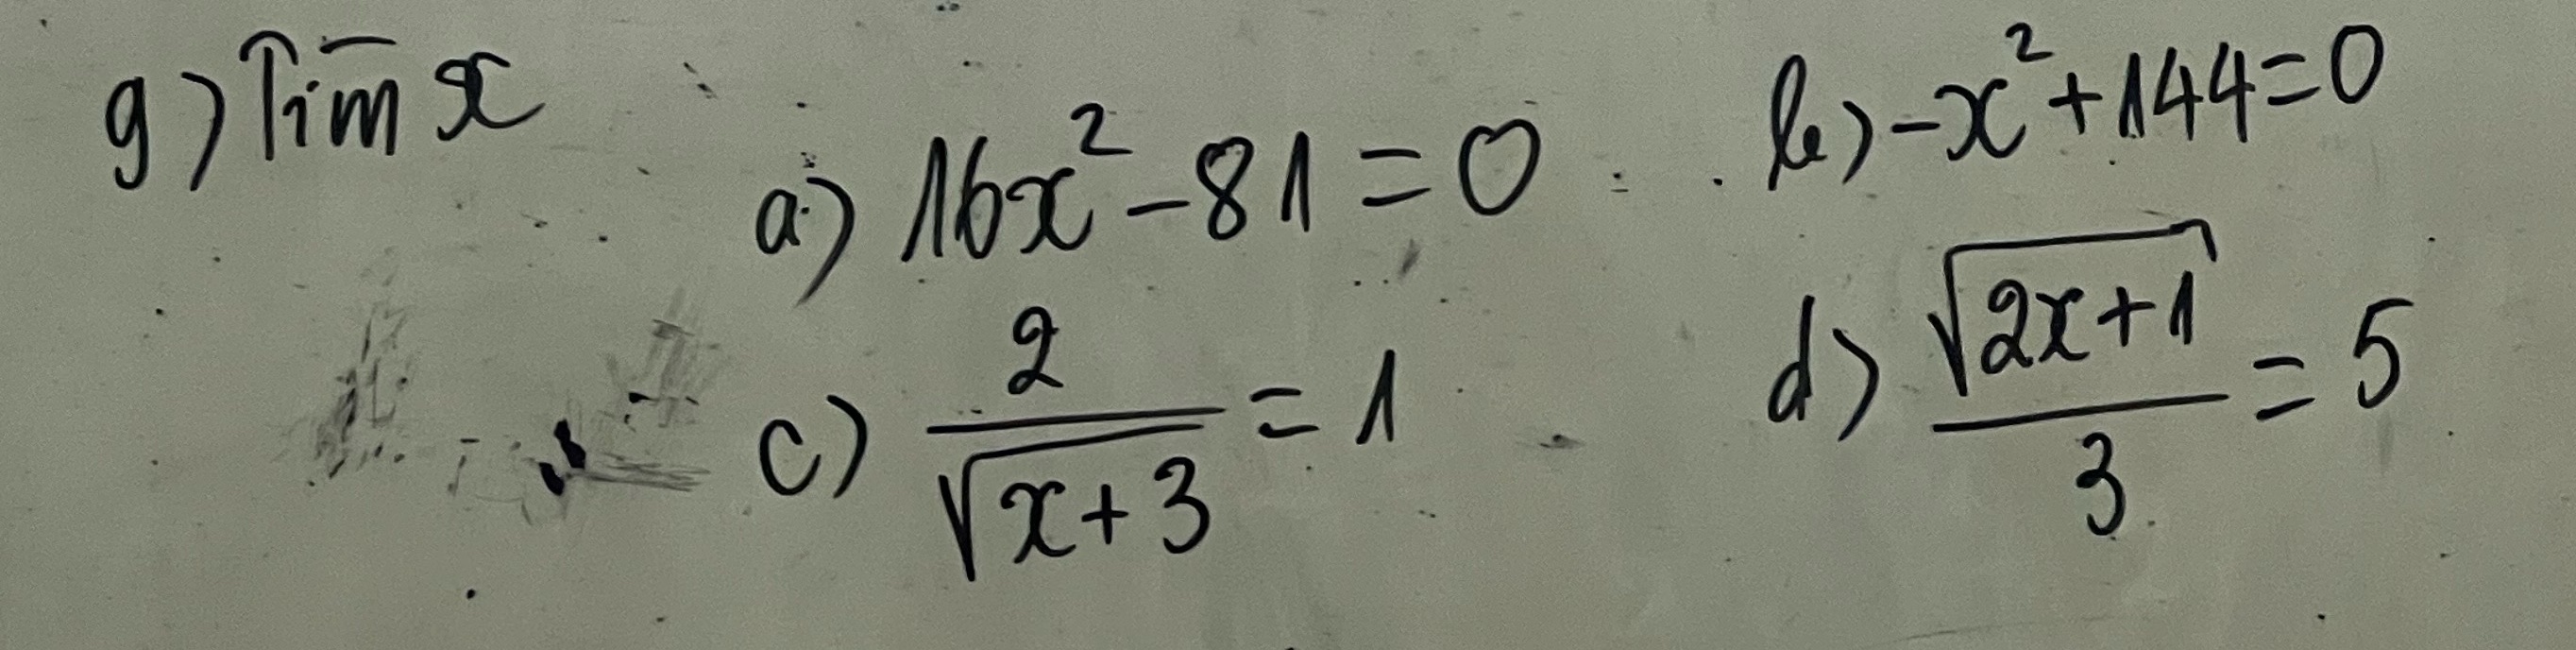 9) Tìm x
a) 16x² - 81 = 0
b) -x² + 144 = 0
c) 2/√(x+3) = 1
d) √(2x+1)/3 = 5